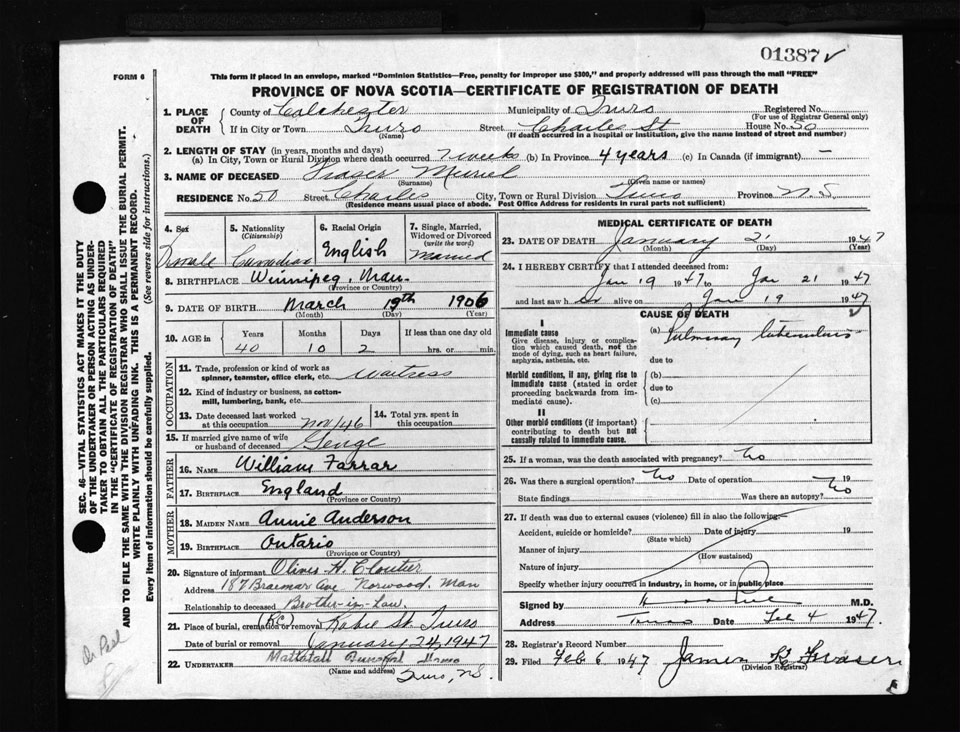 01387
FORM 6
This form if placed in an envelope, marked "Dominion Statistics—Free, penalty for improper use $300," and properly addressed will pass through the mail "FREE"
PROVINCE OF NOVA SCOTIA—CERTIFICATE OF REGISTRATION OF DEATH
1. PLACE OF DEATH
County of Colchester Municipality of Truro Registered No.
(For use of Registrar General only)
If in City or Town Truro Street Charles St House No. 50
(Name) (If death occurred in a hospital or institution, give the name instead of street and number)
2. LENGTH OF STAY (in years, months and days)
(a) In City, Town or Rural Division where death occurred 7 weeks (b) In Province 4 years (c) In Canada (if immigrant) —
3. NAME OF DECEASED Fraser Muriel
(Surname) (Given name or names)
RESIDENCE No. 50 Street Charles City, Town or Rural Division Truro Province N.S
(Residence means usual place of abode. Post Office Address for residents in rural parts not sufficient)
4. Sex 5. Nationality (Citizenship) 6. Racial Origin 7. Single, Married, Widowed or Divorced (write the word)
Female Canadian English Married
8. BIRTHPLACE Winnipeg, Man.
(Province or Country)
9. DATE OF BIRTH March 19th 1906
(Month) (Day) (Year)
10. AGE in Years Months Days If less than one day old
40 10 2 hrs. or min.
OCCUPATION
11. Trade, profession or kind of work as spinner, teamster, office clerk, etc. Waitress
12. Kind of industry or business, as cotton-mill, lumbering, bank, etc.
13. Date deceased last worked at this occupation Nov/46 14. Total yrs. spent in this occupation
15. If married give name of wife or husband of deceased
FATHER
16. NAME William Farrar
17. BIRTHPLACE England
(Province or Country)
MOTHER
18. MAIDEN NAME Annie Anderson
19. BIRTHPLACE Ontario
(Province or Country)
20. Signature of informant H. Cloutier
Address 187 Braemar Ave Norwood, Man
Relationship to deceased Brother-in-Law.
21. Place of burial, cremation or removal (RC) Robie St. Truro
Date of burial or removal January 24, 1947
22. UNDERTAKER Mattatall Funeral Home
(Name and address) Truro, N.S.
MEDICAL CERTIFICATE OF DEATH
23. DATE OF DEATH January 21 1947
(Month) (Day) (Year)
24. I HEREBY CERTIFY that I attended deceased from:
Jan 19 1947 to Jan 21 1947
and last saw her alive on Jan 19 1947
CAUSE OF DEATH
I
Immediate cause
Give disease, injury or complication which caused death, not the mode of dying, such as heart failure, asphyxia, asthenia, etc.
(a) Pulmonary tuberculosis
due to
Morbid conditions, if any, giving rise to immediate cause (stated in order proceeding backwards from immediate cause).
(b)
due to
(c)
II
Other morbid conditions (if important) contributing to death but not causally related to immediate cause.
25. If a woman, was the death associated with pregnancy? No
26. Was there a surgical operation? No Date of operation 19
State findings Was there an autopsy? No
27. If death was due to external causes (violence) fill in also the following:
Accident, suicide or homicide? Date of injury 19
(State which)
Manner of injury
(How sustained)
Nature of injury
Specify whether injury occurred in industry, in home, or in public place
Signed by M.D.
Address Truro Date Feb 4 1947.
28. Registrar's Record Number
29. Filed Feb 6 1947 James Fraser
(Division Registrar)
SEC. 46—VITAL STATISTICS ACT MAKES IT THE DUTY
OF THE UNDERTAKER OR PERSON ACTING AS UNDER-
TAKER TO OBTAIN ALL THE PARTICULARS REQUIRED
IN THE "CERTIFICATE OF REGISTRATION OF DEATH"
AND TO FILE THE SAME WITH THE DIVISION REGISTRAR WHO SHALL ISSUE THE BURIAL PERMIT.
WRITE PLAINLY WITH UNFADING INK. THIS IS A PERMANENT RECORD.
Every item of information should be carefully supplied. (See reverse side for instructions.)